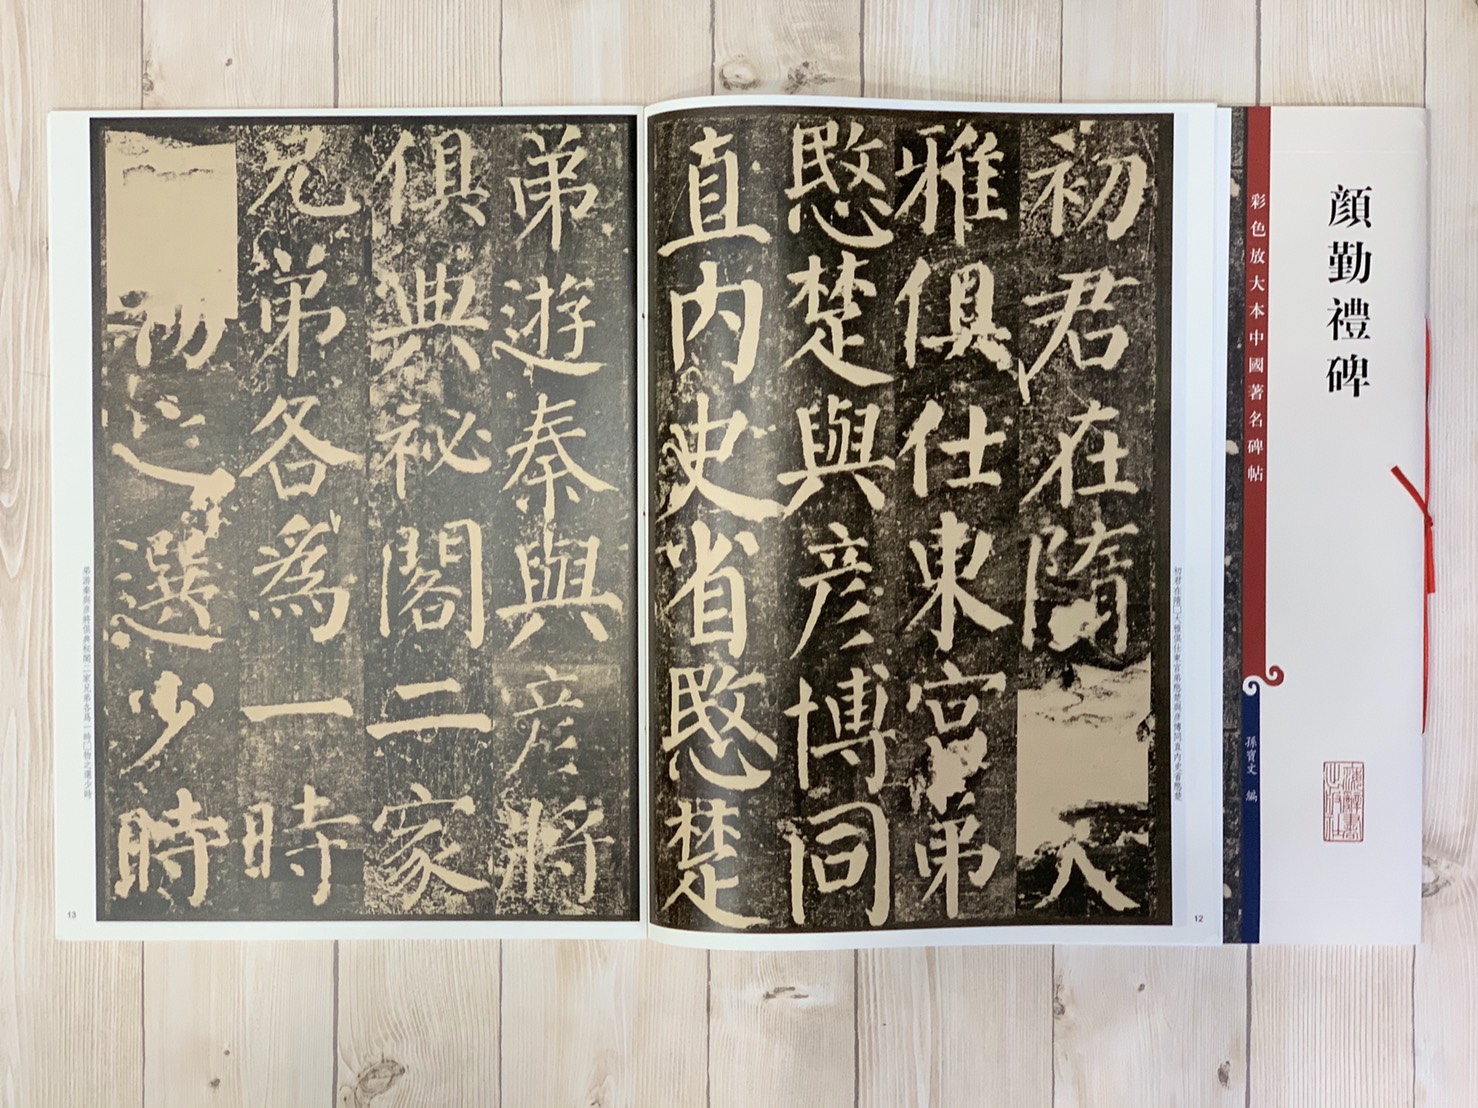 顔勤禮碑
彩色放大本中國著名碑帖
孫寶文 編
初君在隋大
雅俱仕東宮弟
愍楚與彦博同
直内史省愍楚
初君在隋□大雅俱仕東宮弟愍楚與彦博同直内史省愍楚
12
弟遊秦與彦將
俱典祕閣二家
兄弟各爲一時
物之選少時
弟游秦與彦將俱典秘閣二家兄弟各爲一時□物之選少時
13